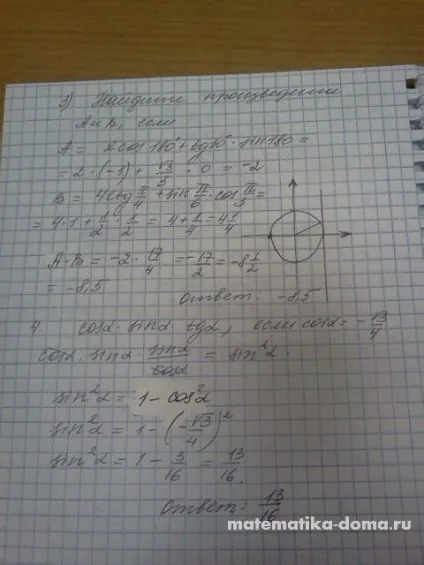 3) Найдите произведение
A и B, если
A = 2cos180° + tg30° · sin180 =
= 2 · (-1) + √3/3 · 0 = -2
B = 4ctg π/4 + sin π/6 · cos π/3 =
= 4·1 + 1/2 · 1/2 = 4 + 1/4 = 4 1/4
A·B = -2 · 17/4 = -17/2 = -8 1/2
= -8,5
Ответ: -8,5
4. cosα · sinα · tgα, если cosα = -√3/4
cosα · sinα · sinα/cosα = sin²α.
sin²α = 1 - cos²α
sin²α = 1 - (-√3/4)²
sin²α = 1 - 3/16 = 13/16.
Ответ: 13/16
matematika-doma.ru